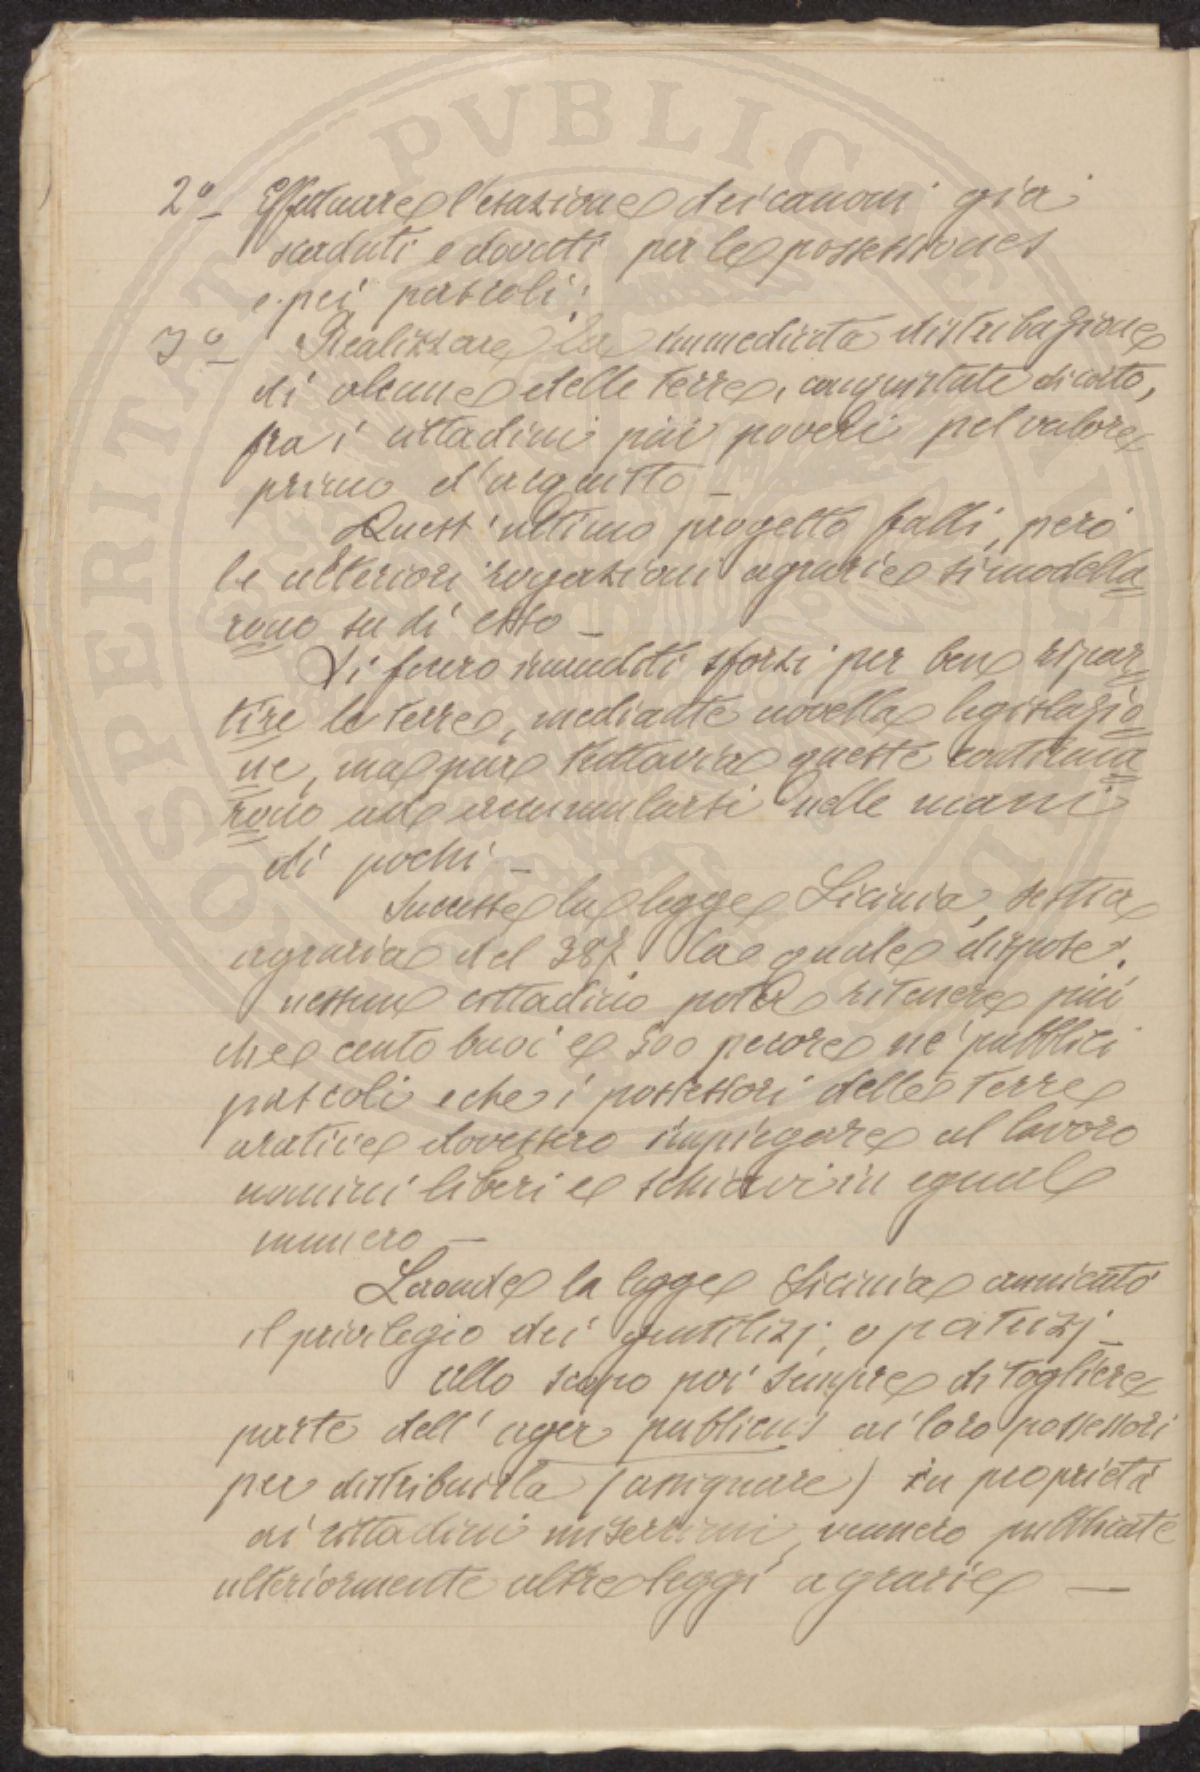 2º - Effettuare l'esazione dei canoni già
scaduti e dovuti per le possessiones
e pei pascoli;
3º - Realizzare la immediata distribuzione
di alcune delle terre, conquistate di costo,
fra i cittadini più poveri pel valore
primo d'acquisto -
Quest'ultimo progetto fallì, però
le ulteriori rogazioni agrarie si modella
rono su di esso -
Vi furo inauditi sforzi per ben ripar
tire le terre, mediante novella legislazio
ne, ma pure tuttavia queste continua
rono ad accumularsi nelle mani
di pochi -
Successe la legge Licinia, sestia
agraria del 387, la quale dispose:
nessun cittadino poter ritenere più
che cento buoi e 500 pecore ne' pubblici
pascoli e che i possessori delle terre
aratice dovessero impiegare al lavoro
uomini liberi e schiavi in egual
numero -
Laonde la legge Licinia annientò
il privilegio dei gentilizj, o patrizj -
Allo scopo poi sempre di togliere
parte dell'ager publicus ai loro possessori
per distribuirla (assignare) in proprietà
ai cittadini miserrimi, vennero pubblicate
ulteriormente altre leggi agrarie -
PROSPERITATI PVBLICAE